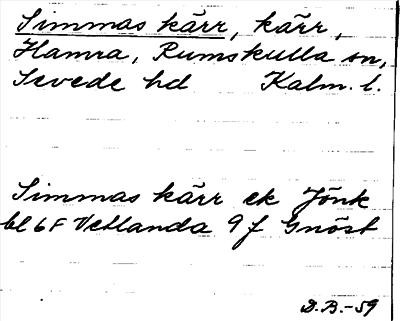 Simmas kärr, kärr,
Hamra, Rumskulla sn,
Sevede hd Kalm. l.
Simmas kärr ek Jönk
bl 6F Vetlanda 9 f Gnöst
D.B.-59